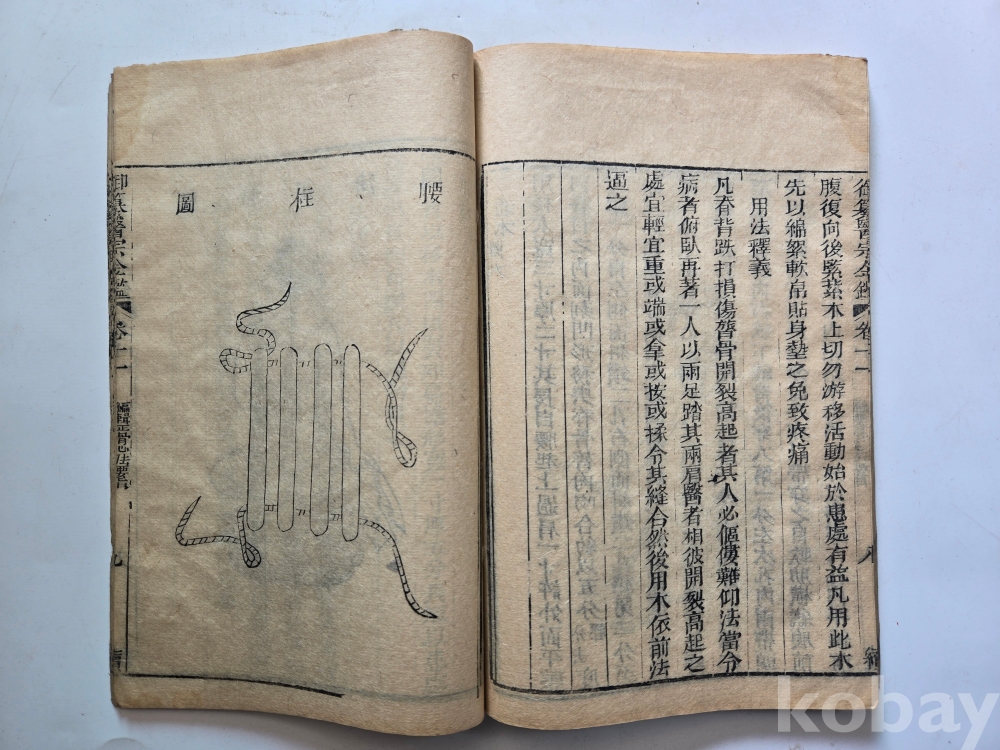 腹復向後緊紮木上切勿游移活動始於患處有益凡用此木
先以綿絮軟帛貼身墊之免致疼痛
用法釋義
凡脊背跌打損傷膂骨開裂高起者其人必傴僂難仰法當令
病者俯臥再著一人以兩足踏其兩肩醫者相彼開裂高起之
處宜輕宜重或端或拿或按或揉令其縫合然後用木依前法
逼之
腰柱圖
卷十一
編輯正骨心法要旨
九
kobay